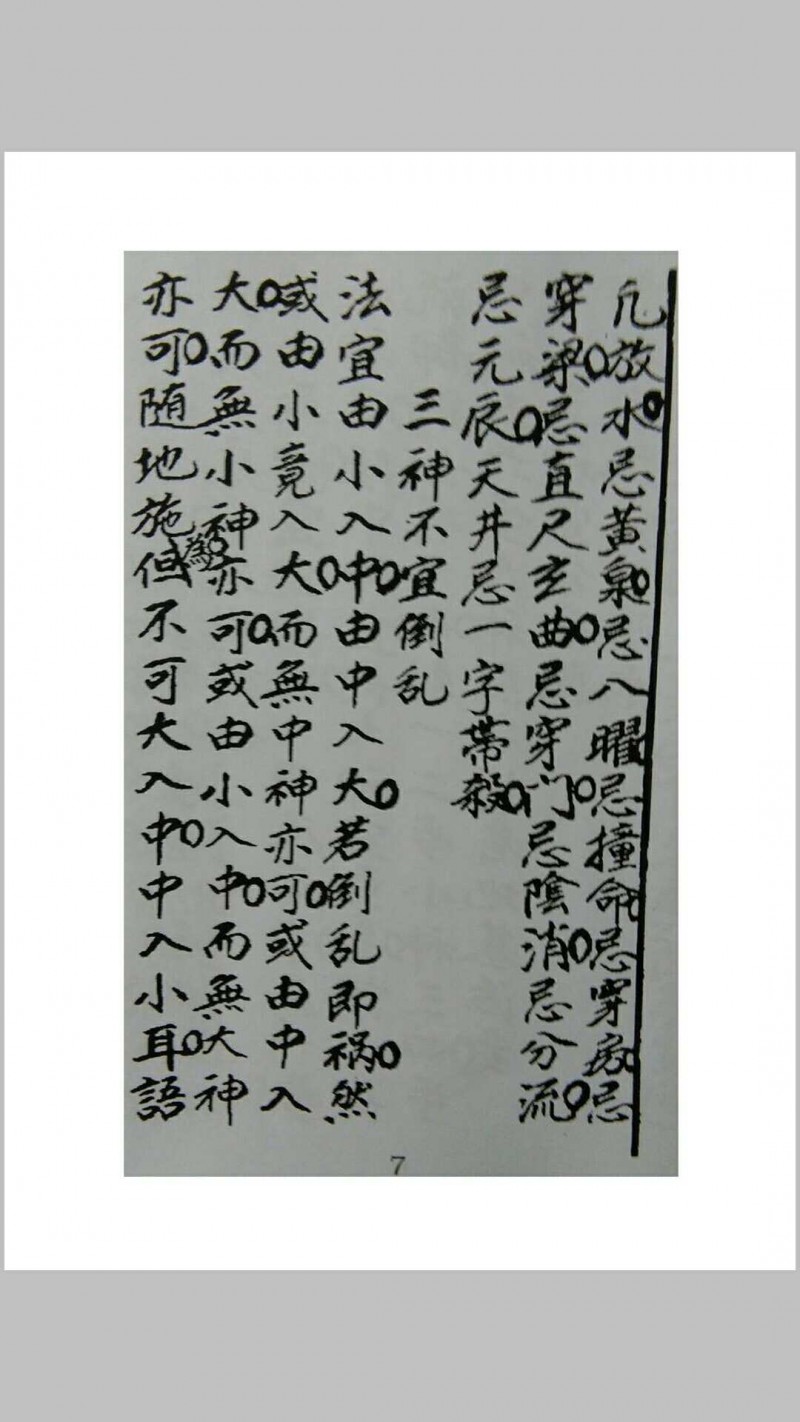 凡放水。忌黃泉。忌八曜。忌撞命。忌穿房。忌
穿梁。忌直尺玄曲。忌穿門。忌陰消。忌分流。
忌元辰天井忌一字帶殺。
三神不宜倒乱
法宜由小入中。由中入大。若倒乱即祸。然
或由小竟入大。而無中神亦可。或由中入
大。而無小神亦可。或由小入中。而無大神
亦可。随地施為。但不可大入中。中入小耳。語
7